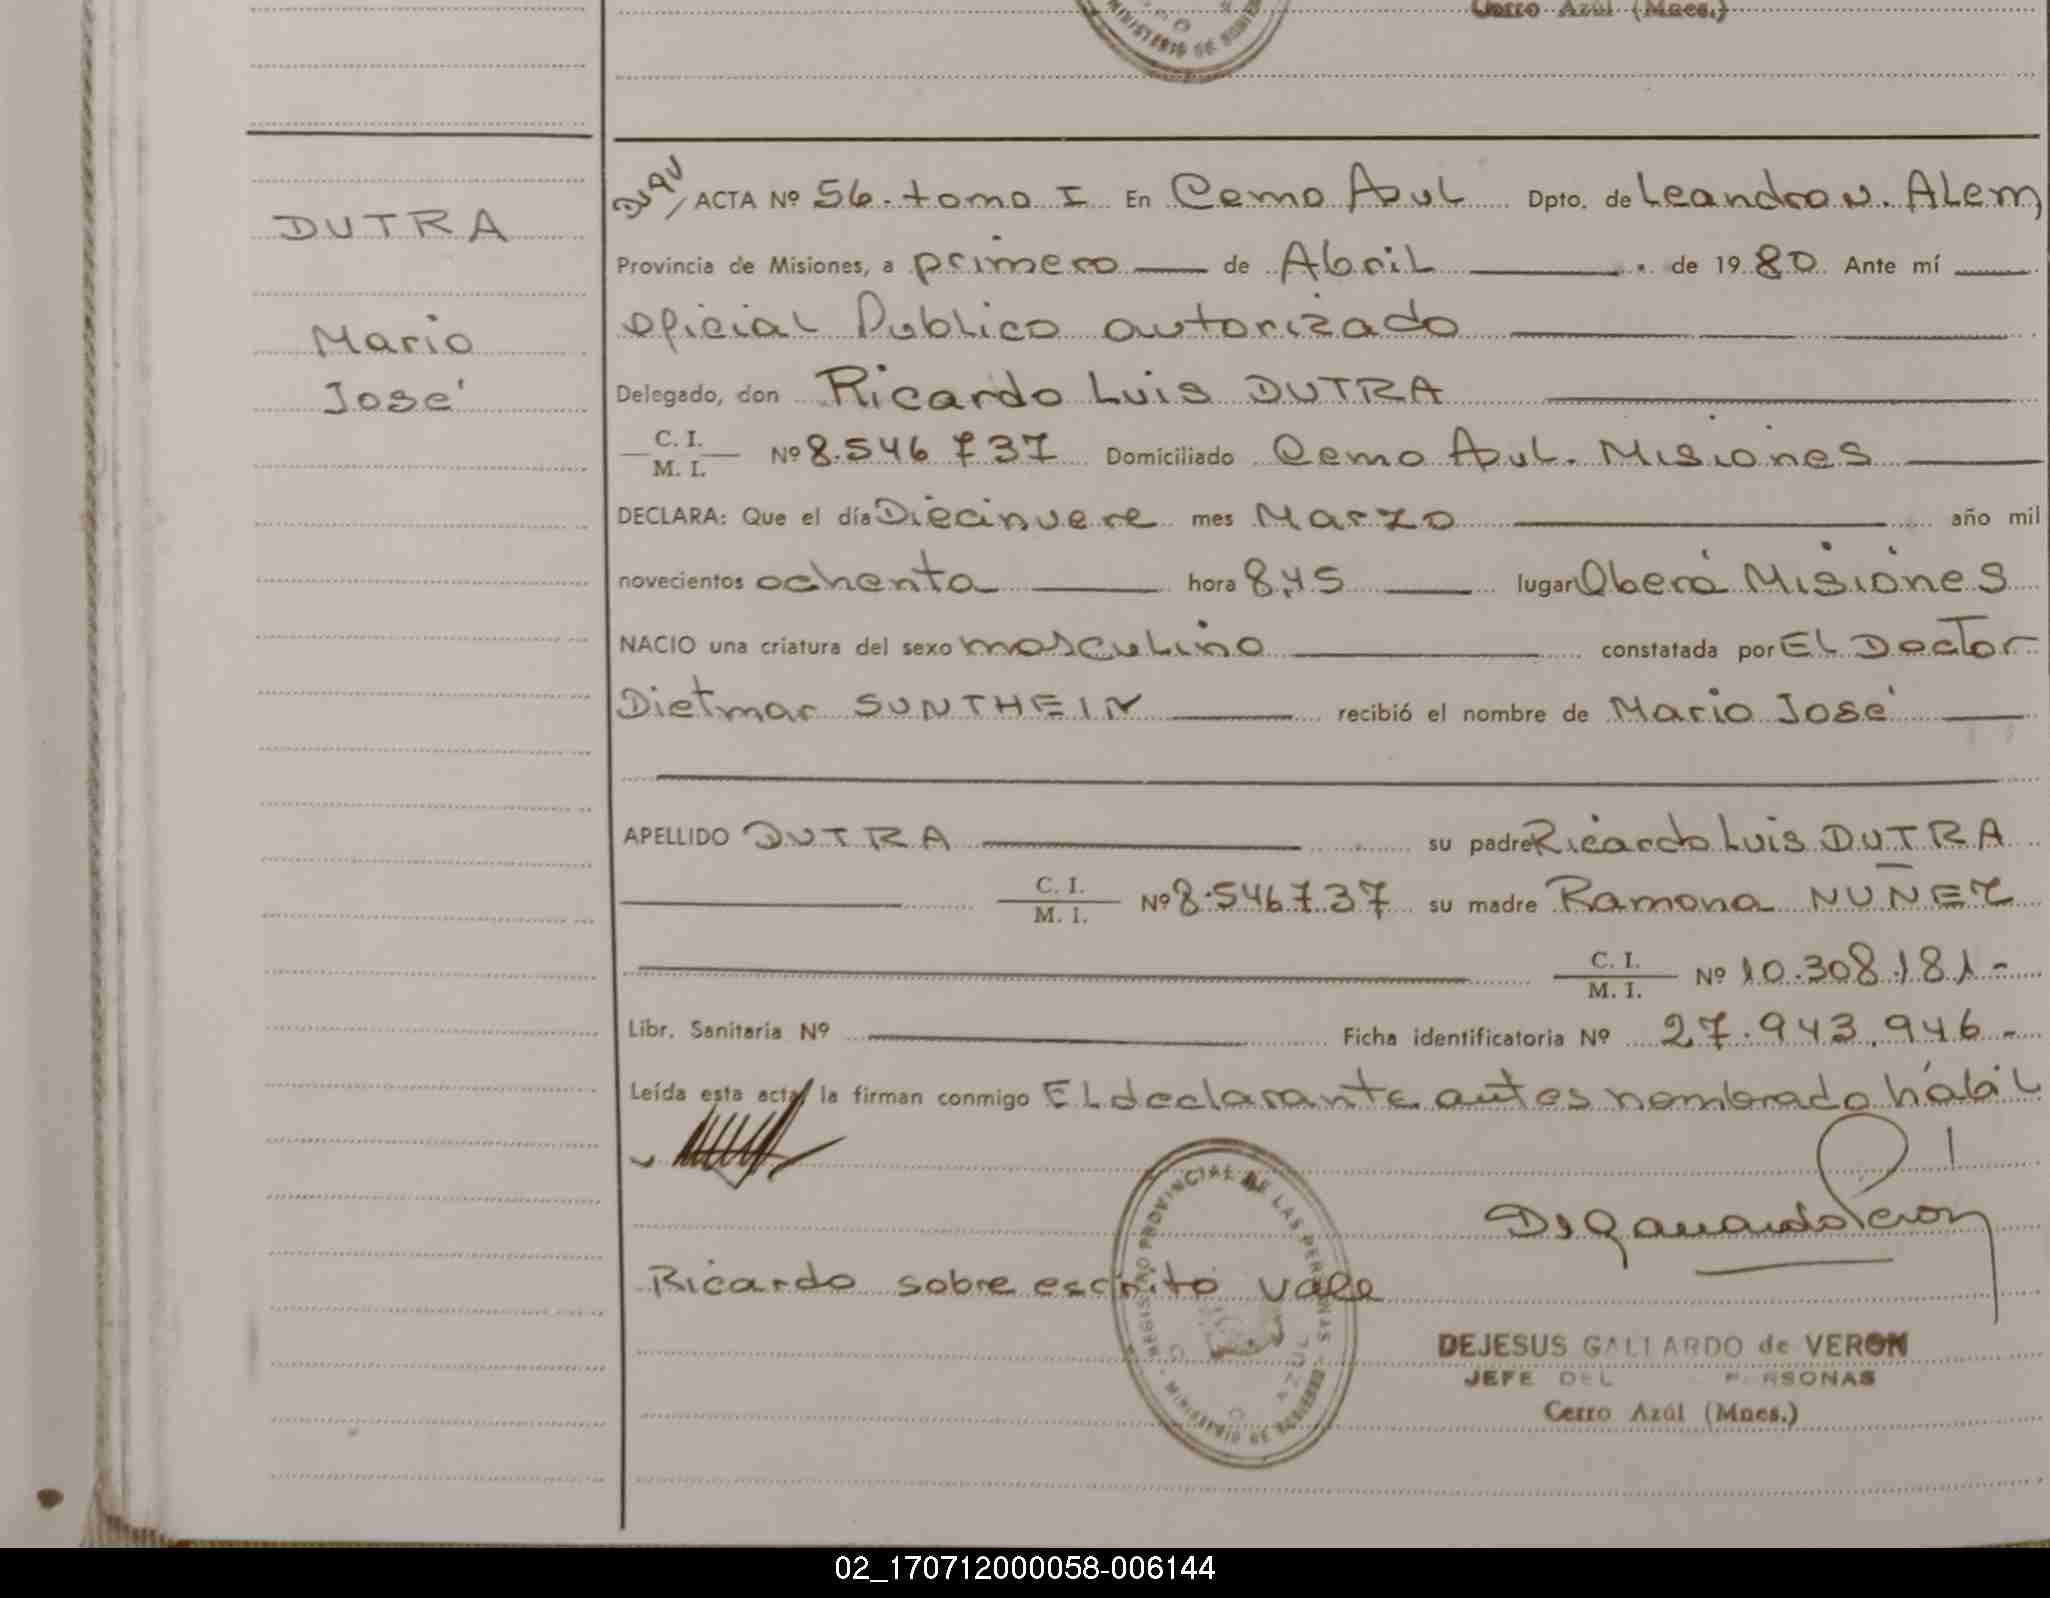 Cerro Azul (Mnes.)
DUTRA
Mario
José
ACTA Nº 56. tomo I En Cerro Azul Dpto. de Leandro N. Alem
Provincia de Misiones, a primero de Abril de 1980 Ante mí
oficial Publico autorizado
Delegado, don Ricardo Luis DUTRA
C. I.
M. I.
Nº 8.546 737 Domiciliado Cerro Azul. Misiones
DECLARA: Que el día Diecinueve mes Marzo año mil
novecientos ochenta hora 8,45 lugar Oberá Misiones
NACIO una criatura del sexo masculino constatada por El Doctor
Dietmar SUNTHEIN recibió el nombre de Mario José
APELLIDO DUTRA su padre Ricardo Luis DUTRA
C. I.
M. I.
Nº 8.546737 su madre Ramona NUÑEZ
C. I.
M. I.
Nº 10.308.181-
Libr. Sanitaria Nº Ficha identificatoria Nº 27.943.946-
Leída esta acta la firman conmigo El declarante antes nombrado hábil
REGISTRO PROVINCIAL DE LAS PERSONAS
Ricardo sobre escrito vale
DEJESUS GALLARDO de VERON
JEFE DEL PERSONAS
Cerro Azúl (Mnes.)
02_170712000058-006144